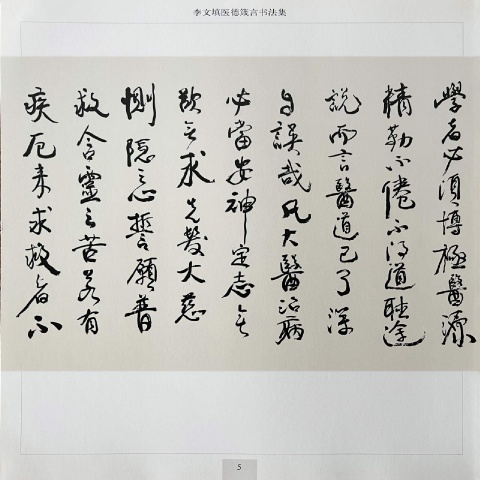 李文填医德箴言书法集
學者必須博極醫源
精勤不倦不得道聽途
說而言醫道已了深
自誤哉凡大醫治病
必當安神定志无
欲无求先發大慈
惻隱之心誓願普
救含靈之苦若有
疾厄來求救者不
5